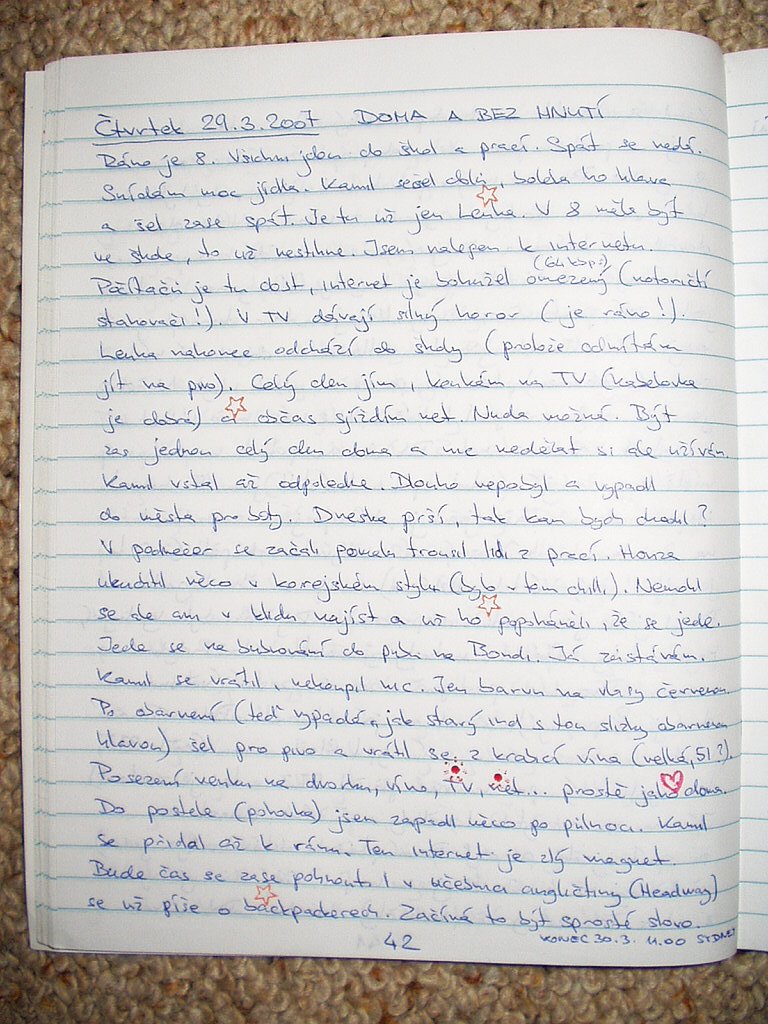 Čtvrtek 29.3.2007 DOMA A BEZ HNUTÍ
Ráno je 8. Všichni jdou do škol a prací. Spát se nedá.
Snídám moc jídla. Kamil sešel dolů, bolela ho hlava
a šel zase spát. Je tu už jen Lenka. V 8 měla být
ve škole, to už nestihne. Jsem nalepen k internetu.
(64 kbps)
Počítačů je tu dost, internet je bohužel omezený (notoričtí
stahovači!). V TV dávají silný horor (je ráno!).
Lenka nakonec odchází do školy (protože odmítám
jít na pivo). Celý den jím, koukám na TV (kabelovka
je dobrá) a občas sjíždím net. Nuda možná. Být
zas jednou celý den doma a nic nedělat si ale užívám.
Kamil vstal až odpoledne. Dlouho nepobyl a vypadl
do města pro boty. Dneska prší, tak kam bych chodil?
V podvečer se začali pomalu trousit lidi z prací. Honza
ukuchtil něco v korejském stylu (bylo v tom chilli). Nemohl
se ale ani v klidu najíst a už ho popoháněli, že se jede.
Jede se na bubnování do pubu na Bondi. Já zůstávám.
Kamil se vrátil, nekoupil nic. Jen barvu na vlasy červenou.
Po obarvení (teď vypadá jak starý ind s tou slizky obarvenou
hlavou) šel pro pivo a vrátil se z krabicí vína (velká, 5l?).
Posezení venku na dvorku, víno, TV, net... prostě jako doma.
Do postele (pohovka) jsem zapadl něco po půlnoci. Kamil
se přidal až k ránu. Ten internet je zlý magnet.
Bude čas se zase pohnout. I v učebnici angličtiny (Headway)
se už píše o backpackerech. Začíná to být sprosté slovo.
42
KONEC 30.3. 11.00 SYDNEY